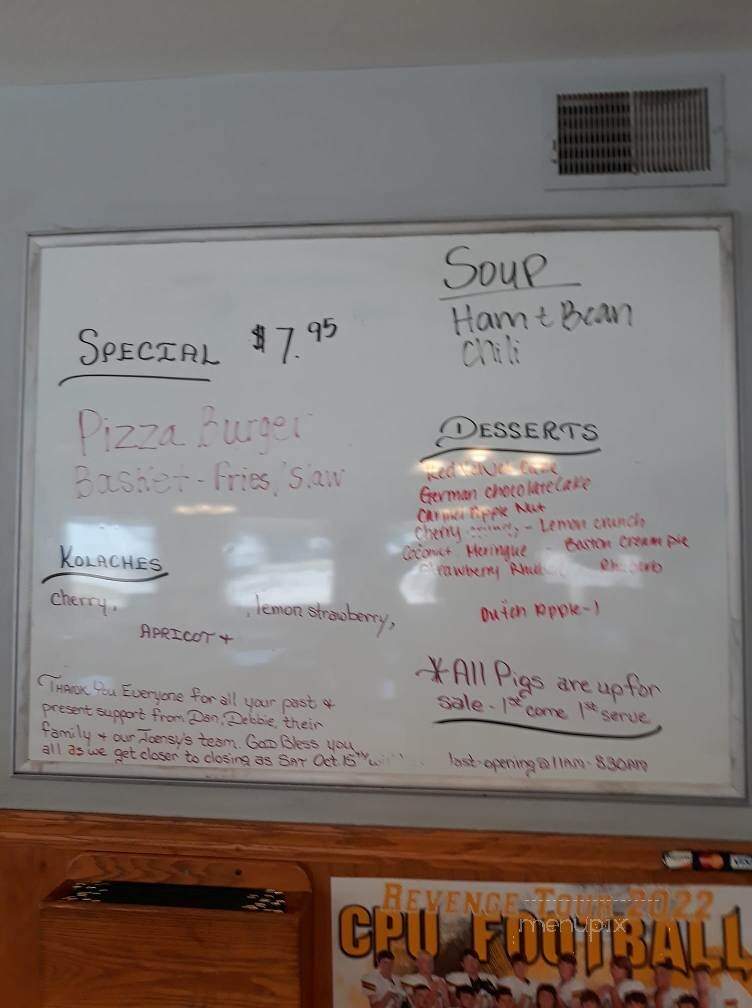 SPECIAL $7.95
Pizza Burger
Basket - Fries, Slaw
KOLACHES
cherry,
lemon strawberry,
APRICOT +
THANK You Everyone for all your past +
present support from Dan, Debbie, their
family + our Joensy's team. GOD Bless you
all as we get closer to closing as SAT Oct 15th
SOUP
Ham + Bean
Chili
DESSERTS
Red Velvet Cake
German chocolate Cake
Carmel Apple Nut
Cherry - Lemon crunch
Coconut Meringue - Boston Cream pie
Strawberry Rhubarb Rhubarb
Dutch Apple-1
*All Pigs are up for
sale - 1st come 1st serve
last opening @ 11AM - 8:30PM
VISA
REVENGE TOUR 2022
menupix
CPU FOOTBALL